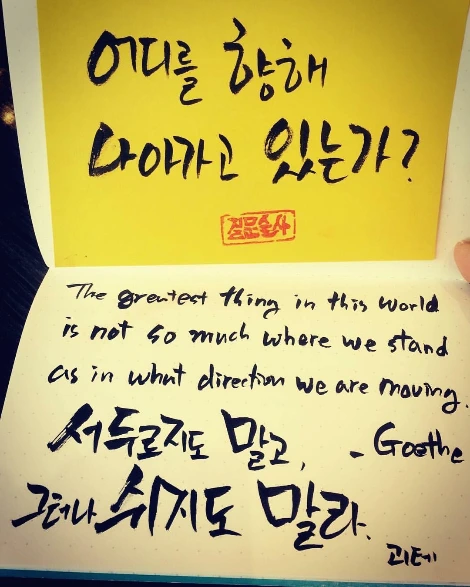 어디를 향해
나아가고 있는가?
질문술사
The greatest thing in this world
is not so much where we stand
as in what direction we are moving.
서두르지도 말고, - Goethe
그러나 쉬지도 말라.
괴테